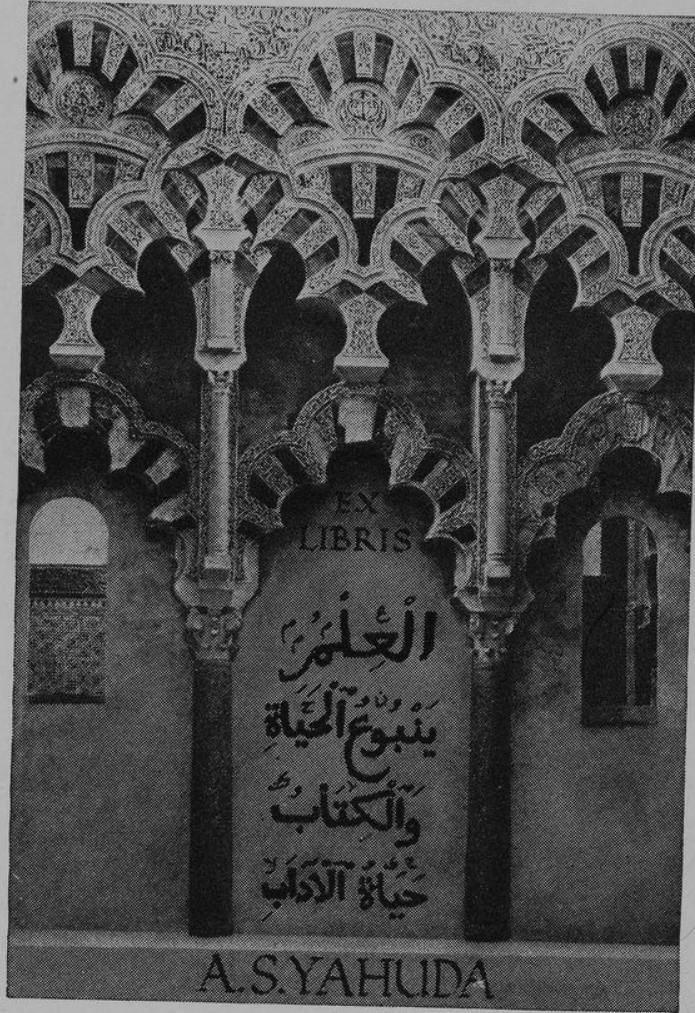 EX
LIBRIS
الْعِلْمُ
يَنْبُوعُ ٱلْحَيَاةِ
وَٱلْكِتَابُ
حَيَاةُ ٱلْآدَابِ
A.S.YAHUDA